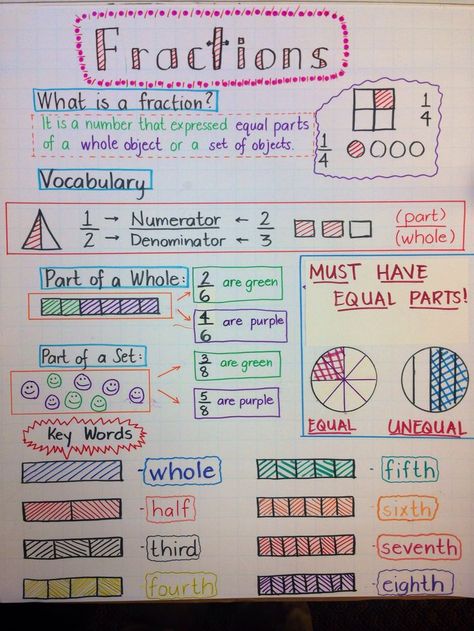 Fractions
What is a fraction?
It is a number that expressed equal parts
of a whole object or a set of objects.
1/4
1/4
Vocabulary
1/2 → Numerator ← 2/3
→ Denominator ←
(part)
(whole)
Part of a Whole:
2/6 are green
4/6 are purple
Part of a Set:
3/8 are green
5/8 are purple
MUST HAVE
EQUAL PARTS!
EQUAL
UNEQUAL
Key Words
-whole
-half
-third
-fourth
-fifth
-sixth
-seventh
-eighth